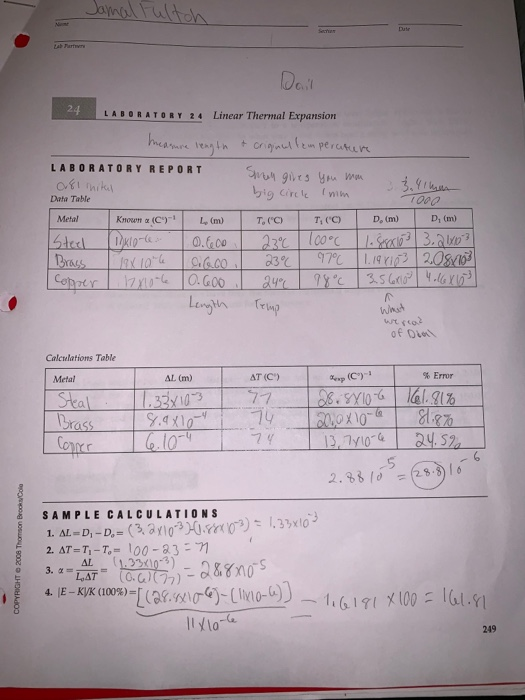 Jamal Fulton
Name
Section
Date
Lab Partners
Dail
24 LABORATORY 24 Linear Thermal Expansion
measure length + original temperature
LABORATORY REPORT
gives you mm
big circle 1 mm
0.81 initial
1000
Data Table
Metal Known α (C°)⁻¹ L₀ (m) T₀ (°C) T₁ (°C) D₀ (m) D₁ (m)
Steel 11x10⁻⁶ 0.600 23°C 100°C 1.88x10⁻³ 3.21x10⁻³
Brass 19x10⁻⁶ 0.600 23°C 97°C 1.19x10⁻³ 2.08x10⁻³
Copper 17x10⁻⁶ 0.600 24°C 98°C 4.16x10⁻³
Length Temp
What
we read
of Dial
Calculations Table
Metal ΔL (m) ΔT (C°) αexp (C°)⁻¹ % Error
Steal 1.33x10⁻³ 77 28.8x10⁻⁶ 161.81%
Brass 8.9x10⁻⁴ 74 20.0x10⁻⁶ 81.8%
Copper 6.10⁻⁴ 74 13.7x10⁻⁶ 24.5%
2.88 10⁻⁵ = 28.8 10⁻⁶
SAMPLE CALCULATIONS
1. ΔL = D₁ – D₀ = (3.21x10⁻³)-(1.88x10⁻³) = 1.33x10⁻³
2. ΔT = T₁ – T₀ = 100-23 = 77
3. α = ΔL/L₀ΔT = (1.33x10⁻³)/(0.6)(77) = 28.8x10⁻⁵
4. |E – K|/K (100%) = [(28.8x10⁻⁶)-(11x10⁻⁶)]/11x10⁻⁶ = 1.6181 x100 = 161.81
249
COPYRIGHT © 2008 Thomson Brooks/Cole